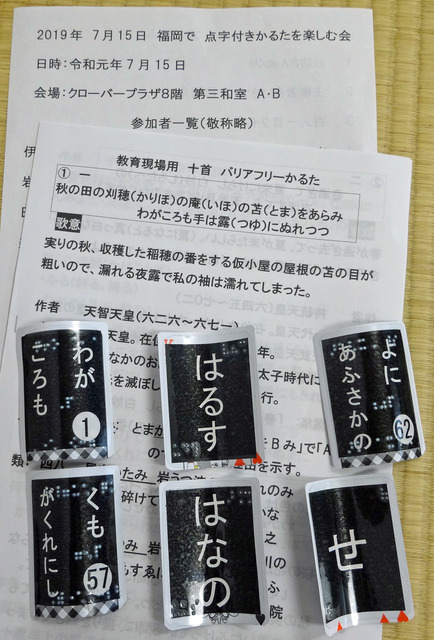 2019年 7月15日 福岡で 点字付きかるたを楽しむ会
日時:令和元年7月15日
会場:クローバープラザ8階 第三和室 A・B
参加者一覧(敬称略)
伊
岩
教育現場用 十首 バリアフリーかるた
① 一
秋の田の刈穂(かりほ)の庵(いほ)の苫(とま)をあらみ
わがころも手は露(つゆ)にぬれつつ
歌意
実りの秋、収穫した稲穂の番をする仮小屋の屋根の苫の目が
粗いので、漏れる夜露で私の袖は濡れてしまった。
作者 天智天皇(六二六~六七一)
天皇。在位
年。
なかのお
太子時代に
を滅ぼし
行。
とまが
をBみ」で「A
の
理由を示す。
類
四八
いたみ
岩うつ
れのみ
砕けて
かな
之
み
川の
もすゑに
院
わが
ころも
1
はるす
よに
あふさかの
62
くも
がくれにし
57
はなの
せ